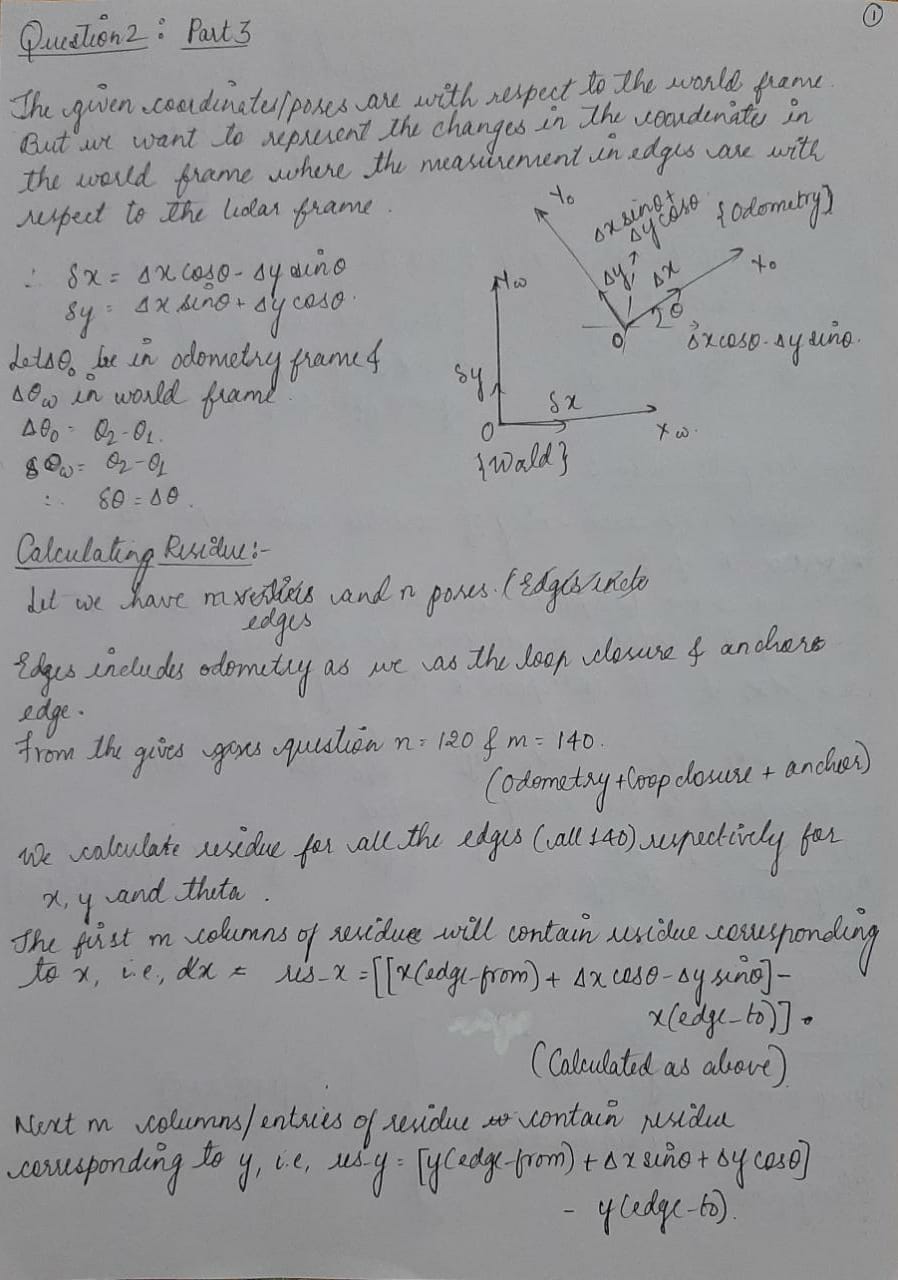 ①
Question 2 : Part 3
The given coordinates/poses are with respect to the world frame.
But we want to represent the changes in the coordinates in
the world frame where the measurement in edges are with
respect to the lidar frame.
∴ δx = Δx cosθ - Δy sinθ
δy = Δx sinθ + Δy cosθ.
Yo
Δx sinθ +
Δy cosθ
{Odometry}
Xo
Δy
Δx
θ
O
Δx cosθ - Δy sinθ.
Yw
δy
δx
O
Xw.
{World}
Let Δθo be in odometry frame &
Δθw in world frame.
Δθo = θ2 - θ1.
δθw = θ2 - θ1
∴ δθ = Δθ.
Calculating Residue:-
Let we have m edges and n poses.
Edges includes odometry as we as the loop closure & anchors
edge.
From the gives question n = 120 & m = 140.
(Odometry + loop closure + anchor)
We calculate residue for all the edges (all 140) respectively for
x, y and theta.
The first m columns of residue will contain residue corresponding
to x, i.e., dx = res_x = [[x(edge-from) + Δx cosθ - Δy sinθ] -
x(edge-to)].
(Calculated as above)
Next m columns/entries of residue contain residue
corresponding to y, i.e, res-y = [y(edge-from) + Δx sinθ + Δy cosθ]
- y(edge-to).